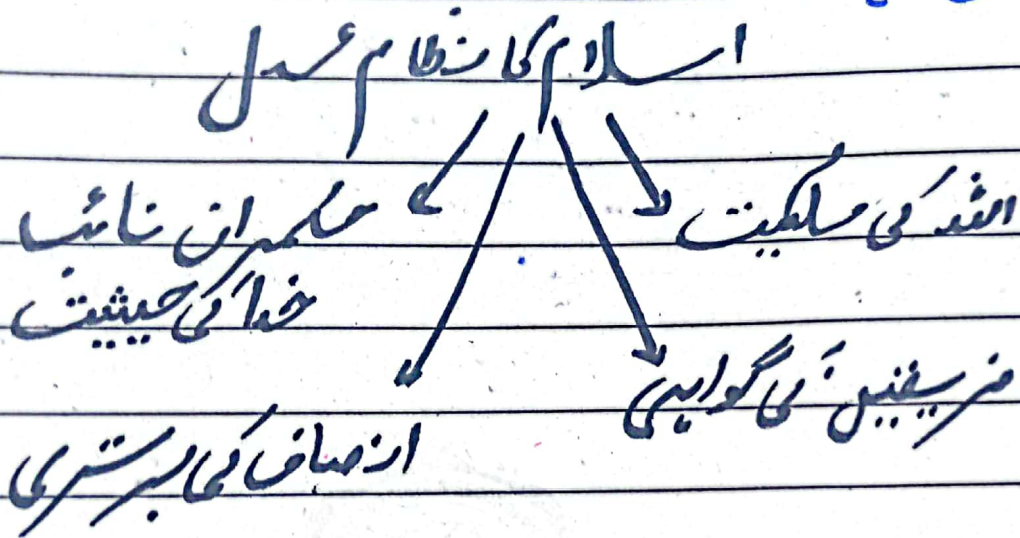 اسلام کا نظام عدل
اللہ کی ملکیت
حکمران نائب
خدا کی حیثیت
فریقین کی گواہی
انصاف کی برتری